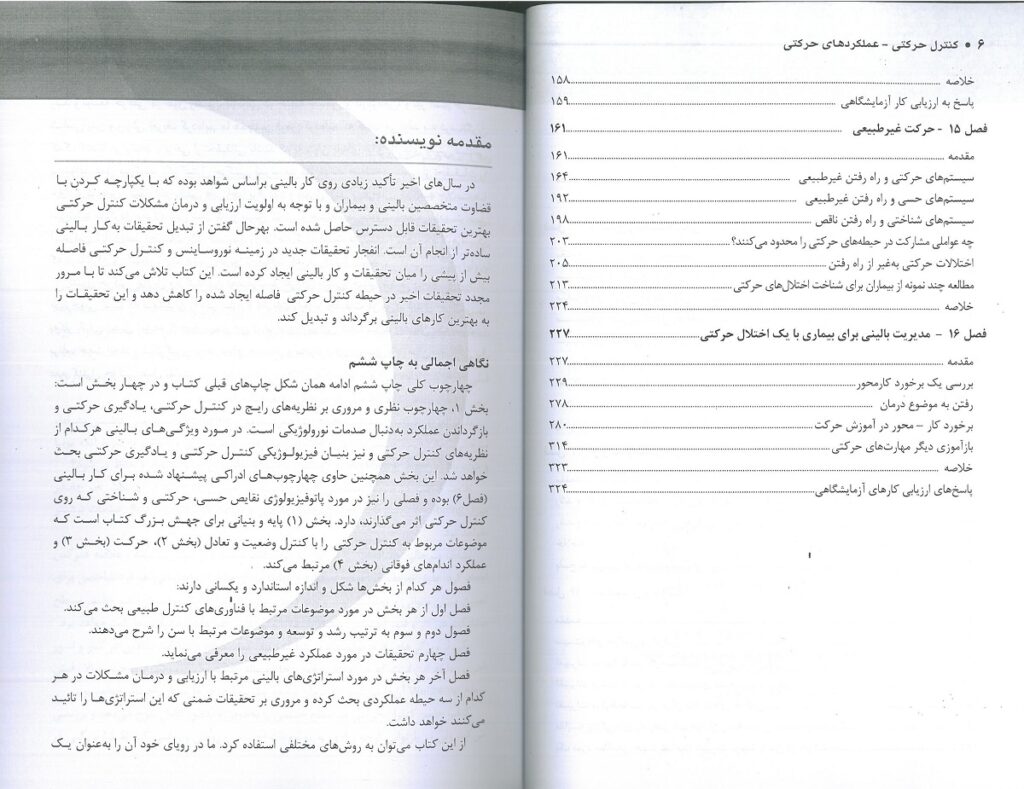 ۶ • کنترل حرکتی - عملکردهای حرکتی
خلاصه ........ ۱۵۸
پاسخ به ارزیابی کار آزمایشگاهی ........ ۱۵۹
فصل ۱۵ - حرکت غیرطبیعی ........ ۱۶۱
مقدمه ........ ۱۶۱
سیستم‌های حرکتی و راه رفتن غیرطبیعی ........ ۱۶۴
سیستم‌های حسی و راه رفتن غیرطبیعی ........ ۱۹۲
سیستم‌های شناختی و راه رفتن ناقص ........ ۱۹۸
چه عواملی مشارکت در حیطه‌های حرکتی را محدود می‌کنند؟ ........ ۲۰۳
اختلالات حرکتی به‌غیر از راه رفتن ........ ۲۰۵
مطالعه چند نمونه از بیماران برای شناخت اختلال‌های حرکتی ........ ۲۱۳
خلاصه ........ ۲۲۴
فصل ۱۶ - مدیریت بالینی برای بیماری با یک اختلال حرکتی ........ ۲۲۷
مقدمه ........ ۲۲۷
بررسی یک برخورد کارمحور ........ ۲۲۹
رفتن به موضوع درمان ........ ۲۷۸
برخورد کار - محور در آموزش حرکت ........ ۲۸۰
بازآموزی دیگر مهارت‌های حرکتی ........ ۳۱۴
خلاصه ........ ۳۲۳
پاسخ‌های ارزیابی کارهای آزمایشگاهی ........ ۳۲۴
مقدمه نویسنده:
در سال‌های اخیر تأکید زیادی روی کار بالینی براساس شواهد بوده که با یکپارچه کردن با
قضاوت متخصصین بالینی و بیماران و با توجه به اولویت ارزیابی و درمان مشکلات کنترل حرکتی
بهترین تحقیقات قابل دسترس حاصل شده است. بهرحال گفتن از تبدیل تحقیقات به‌کار بالینی
ساده‌تر از انجام آن است. انفجار تحقیقات جدید در زمینه نوروساینس و کنترل حرکتی فاصله
بیش از پیشی را میان تحقیقات و کار بالینی ایجاد کرده است. این کتاب تلاش می‌کند تا با مرور
مجدد تحقیقات اخیر در حیطه کنترل حرکتی فاصله ایجاد شده را کاهش دهد و این تحقیقات را
به بهترین کارهای بالینی برگرداند و تبدیل کند.
نگاهی اجمالی به چاپ ششم
چهارچوب کلی چاپ ششم ادامه همان شکل چاپ‌های قبلی کتاب و در چهار بخش است:
بخش ۱، چهارچوب نظری و مروری بر نظریه‌های رایج در کنترل حرکتی، یادگیری حرکتی و
بازگرداندن عملکرد به‌دنبال صدمات نورولوژیکی است. در مورد ویژگی‌های بالینی هرکدام از
نظریه‌های کنترل حرکتی و نیز بنیان فیزیولوژیکی کنترل حرکتی و یادگیری حرکتی بحث
خواهد شد. این بخش همچنین حاوی چهارچوب‌های ادراکی پیشنهاد شده برای کار بالینی
(فصل۶) بوده و فصلی را نیز در مورد پاتوفیزیولوژی نقایص حسی، حرکتی و شناختی که روی
کنترل حرکتی اثر می‌گذارند، دارد. بخش (۱) پایه و بنیانی برای جهش بزرگ کتاب است که
موضوعات مربوط به کنترل حرکتی را با کنترل وضعیت و تعادل (بخش ۲)، حرکت (بخش ۳) و
عملکرد اندام‌های فوقانی (بخش ۴) مرتبط می‌کند.
فصول هر کدام از بخش‌ها شکل و اندازه استاندارد و یکسانی دارند:
فصل اول از هر بخش در مورد موضوعات مرتبط با فناوری‌های کنترل طبیعی بحث می‌کند.
فصول دوم و سوم به ترتیب رشد و توسعه و موضوعات مرتبط با سن را شرح می‌دهند.
فصل چهارم تحقیقات در مورد عملکرد غیرطبیعی را معرفی می‌نماید.
فصل آخر هر بخش در مورد استراتژی‌های بالینی مرتبط با ارزیابی و درمان مشکلات در هر
کدام از سه حیطه عملکردی بحث کرده و مروری بر تحقیقات ضمنی که این استراتژی‌ها را تائید
می‌کنند خواهد داشت.
از این کتاب می‌توان به روش‌های مختلفی استفاده کرد. ما در رویای خود آن را به‌عنوان یک